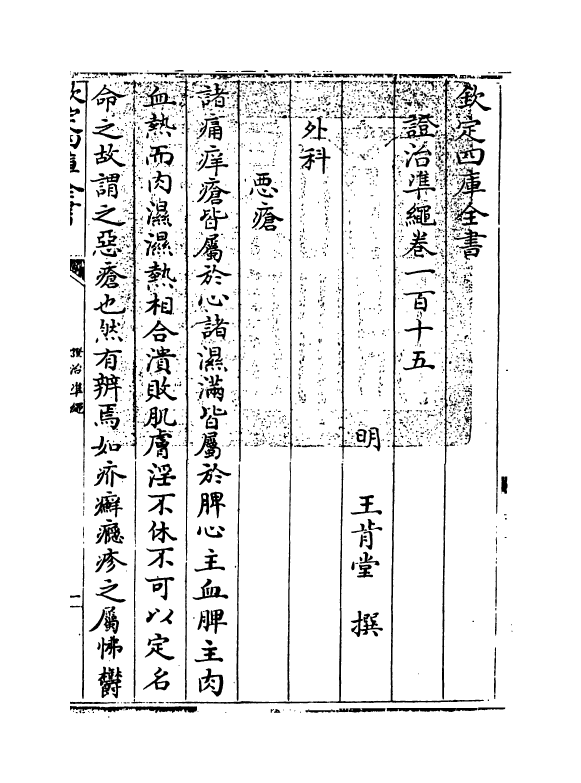 欽定四庫全書
證治準繩卷一百十五
明 王肯堂 撰
外科
惡瘡
諸痛痒瘡皆屬於心諸濕滿皆屬於脾心主血脾主肉
血熱而肉濕濕熱相合潰敗肌膚淫不休不可以定名
命之故謂之惡瘡也然有辨焉如疥癬癮疹之屬怫鬱
欽定四庫全書
證治準繩
一